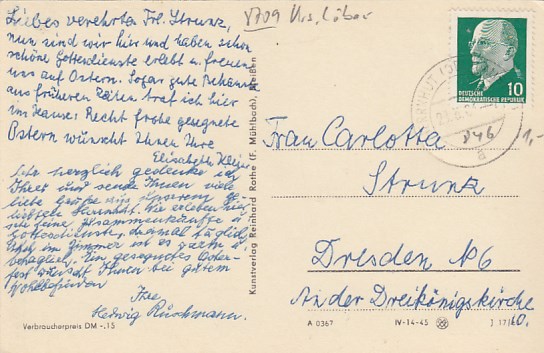 Liebes verehrtes Frl. Strunz,
nun sind wir hier und haben schon
schöne Gottesdienste erlebt u. freuen
uns auf Ostern. Sogar gute Bekannte
aus früheren Zeiten traf ich hier
im Hause. Recht frohe gesegnete
Ostern wünscht Ihnen Ihre
Elisabeth
Sehr herzlich gedenke ich
Ihrer und sende Ihnen viele
liebe Grüße aus unserem ge-
liebten Herrnhut. Wir erleben hier
sehr feine Zusammenkünfte u.
Gottesdienste, dreimal täglich.
Im Zimmer ist es warm u.
behaglich. Ein gesegnetes Oster-
fest wünscht Ihnen bei gutem
Wohlbefinden
Ihre
Hedwig Rückmann.
Verbraucherpreis DM -,15
Kunstverlag Reinhard Rothe (F. Mühlbach), Meißen
8709 Löbau
DEUTSCHE
DEMOKRATISCHE REPUBLIK
10
a
1,-
Frau Carlotta
Strunz
Dresden N6
An der Dreikönigskirche
10.
A 0367
IV-14-45